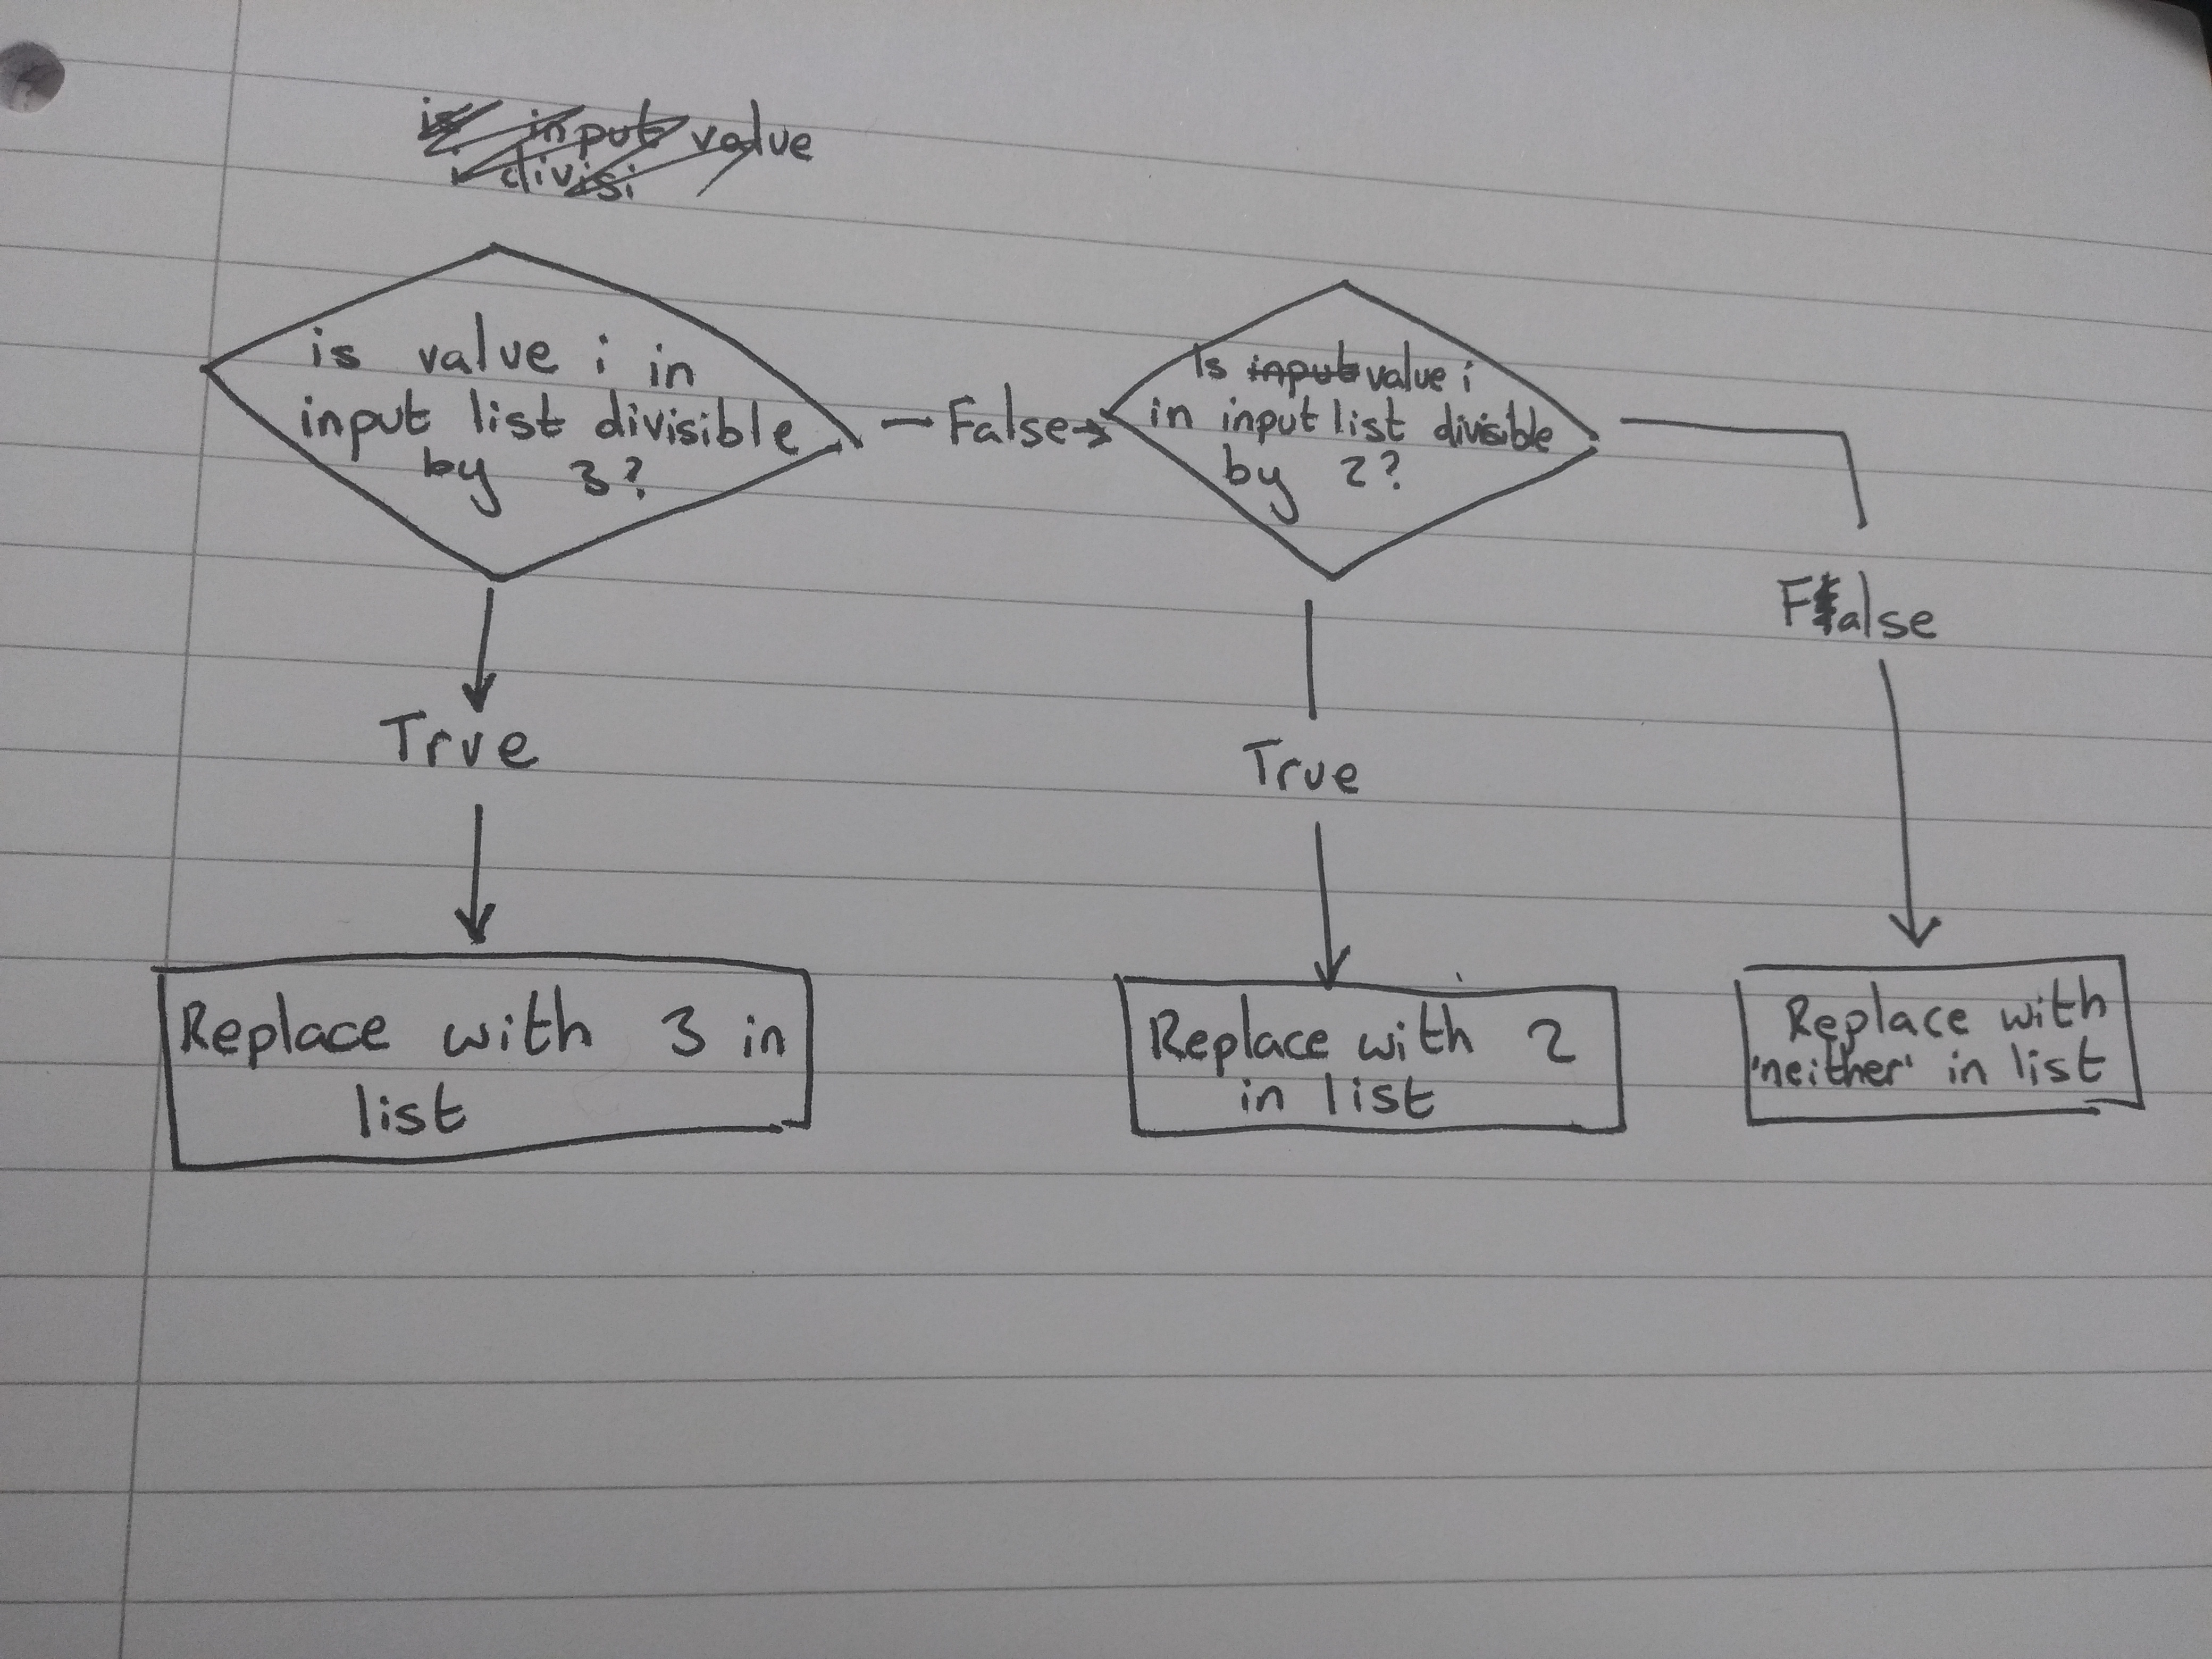 is input value
i divisi
is value i in
input list divisible
by 3?
False
Is input value i
in input list divisible
by 2?
False
True
True
Replace with 3 in
list
Replace with 2
in list
Replace with
'neither' in list